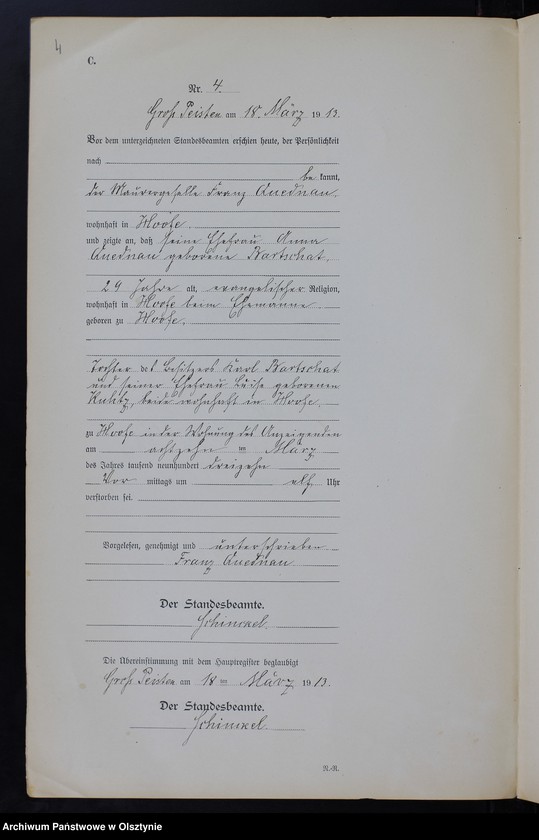 4
C.
Nr. 4.
Groß Peisten am 18. März 1913.
Vor dem unterzeichneten Standesbeamten erschien heute, der Persönlichkeit
nach
be kannt,
der Maurergeselle Franz Quednau,
wohnhaft in Woofe,
und zeigte an, daß seine Ehefrau Anna
Quednau geborene Bartschat,
29 Jahre alt, evangelischer Religion,
wohnhaft in Woofe beim Ehemanne
geboren zu Woofe,
Tochter des Besitzers Karl Bartschat
und seiner Ehefrau Luise geborenen
beide wohnhaft in Woofe,
zu Woofe in der Wohnung des Anzeigenden
am achtzehn ten März
des Jahres tausend neunhundert dreizehn
Vor mittags um elf Uhr
verstorben sei.
Vorgelesen, genehmigt und unterschrieben
Franz Quednau
Der Standesbeamte.
Schinckel.
Die Übereinstimmung mit dem Hauptregister beglaubigt
Groß Peisten am 18 ten März 1913.
Der Standesbeamte.
Schinckel.
R.-R.
Archiwum Państwowe w Olsztynie